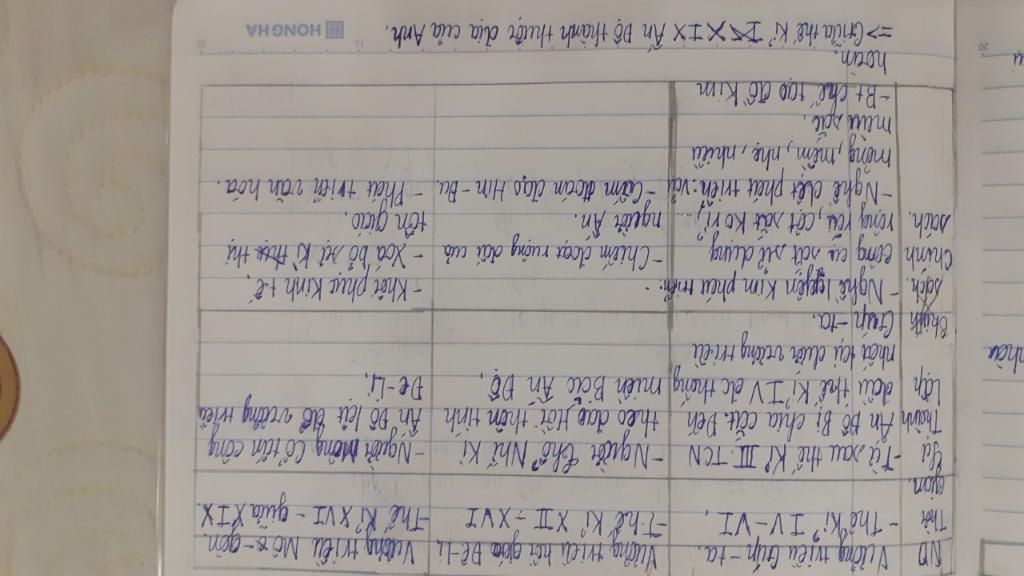 ND Vương triều Gúp-ta. Vương triều hồi giáo Đê-li. Vương triều Mô-gôn.
Thời - Thế kỉ IV - VI. - Thế kỉ XII - XVI - Thế kỉ XVI - giữa XIX.
gian.
Sự - Từ sau thế kỉ III TCN - Người Thổ Nhĩ Kì - Người Mông Cổ tấn công
Thành Ấn Độ Bị chia cắt. Đến theo đạo Hồi thôn tính Ấn Độ lập vương triều
Lập đầu thế kỉ IV đc thống miền Bắc Ấn Độ. Đê-Li.
nhất lại dưới vương triều
Chính Gúp-ta.
sách - Nghề luyện kim phát triển: - Khôi phục kinh tế.
Chính công cụ sắt sử dụng - Chiếm đoạt ruộng đất của - Xoá bỏ sự kì thị
sách. rộng rãi, cột sắt người Ấn. tôn giáo.
- Nghề dệt phát triển: vải - Cấm đoán đạo Hin-Đu. - Phát triển văn hoá.
mỏng, mềm, nhẹ, nhiều
màu sắc.
- Bt chế tạo đồ kim
hoàn.
=> Giữa thế kỉ XIX Ấn Độ thành thuộc địa của Anh.
HONG HA
20
15
20